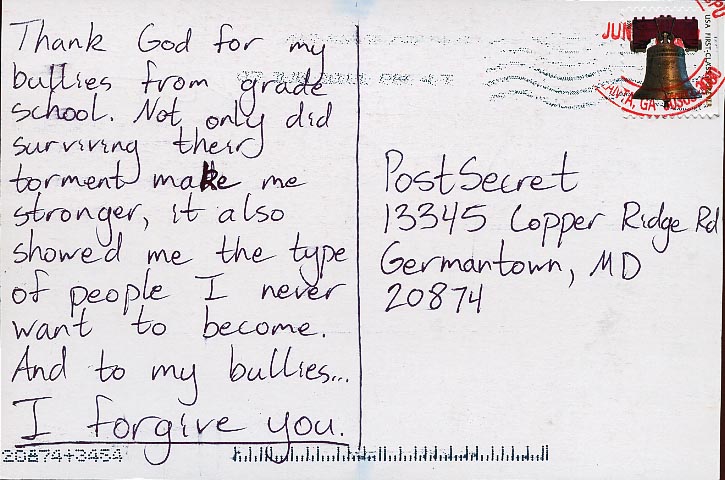 Thank God for my
bullies from grade
school. Not only did
surviving their
torment make me
stronger, it also
showed me the type
of people I never
want to become.
And to my bullies...
I forgive you.
PostSecret
13345 Copper Ridge Rd
Germantown, MD
20874
USA FIRST-CLASS
JUN
GA 303
20874+3454